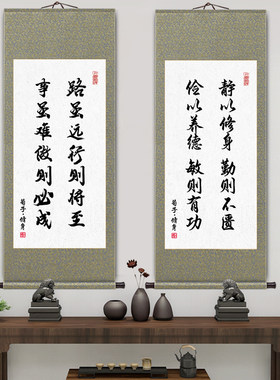 静以修身 勤则不匮
俭以养德 敏则有功
荀子·修身
路虽远行则将至
事虽难做则必成
荀子·修身